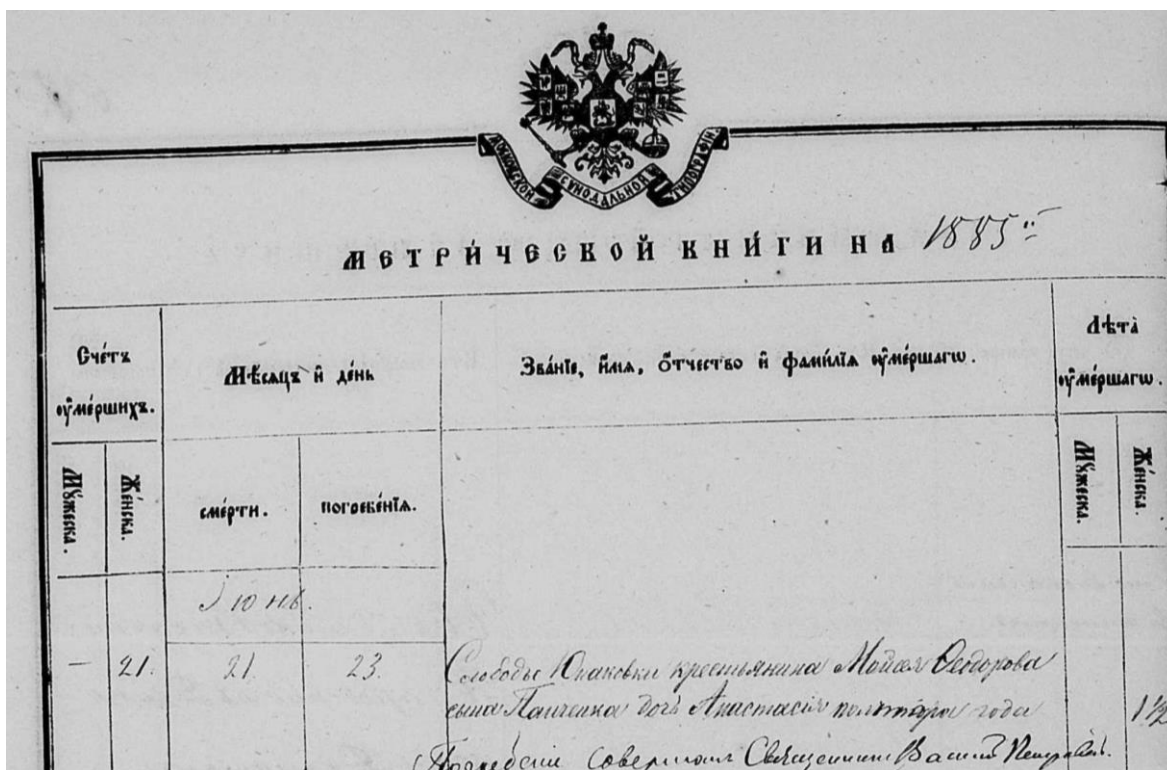 МОСКОВСКОЙ СѴНОДАЛЬНОЙ ТИПОГРАФІИ.
МЕТРИ́ЧЕСКОЙ КНИ́ГИ НА 1885
Сче́тъ ᲂу҆ме́ршихъ.
Мѣ́сѧцъ и҆ де́нь
Зва́нїе, и҆́мѧ, ѻ҆́тчество и҆ фами́лїѧ ᲂу҆ме́ршагѡ.
Лѣта̀ ᲂу҆ме́ршагѡ.
Мꙋ́жеска.
Же́нска.
сме́рти.
погребе́нїѧ.
Мꙋ́жеска.
Же́нска.
Іюнь.
— 21. 21. 23. Слободы Юнаковки крестьянина Моисея Ѳеодорова
сына Панченка дочь Анастасія полтора года 1½
Погребеніе совершалъ Священникъ Василій